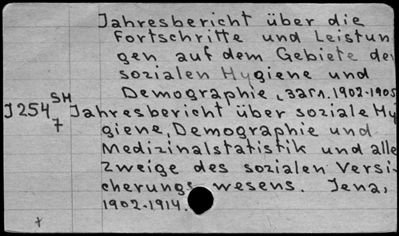 Jahresbericht über die
Fortschritte und Leistun
gen auf dem Gebiete der
sozialen Hygiene und
Demographie, загл. 1902-1905
J254 SH/7 Jahresbericht über soziale Hy
giene, Demographie und
Medizinalstatistik und alle
Zweige des sozialen Versi-
cherungswesens. Jena,
1902-1914.